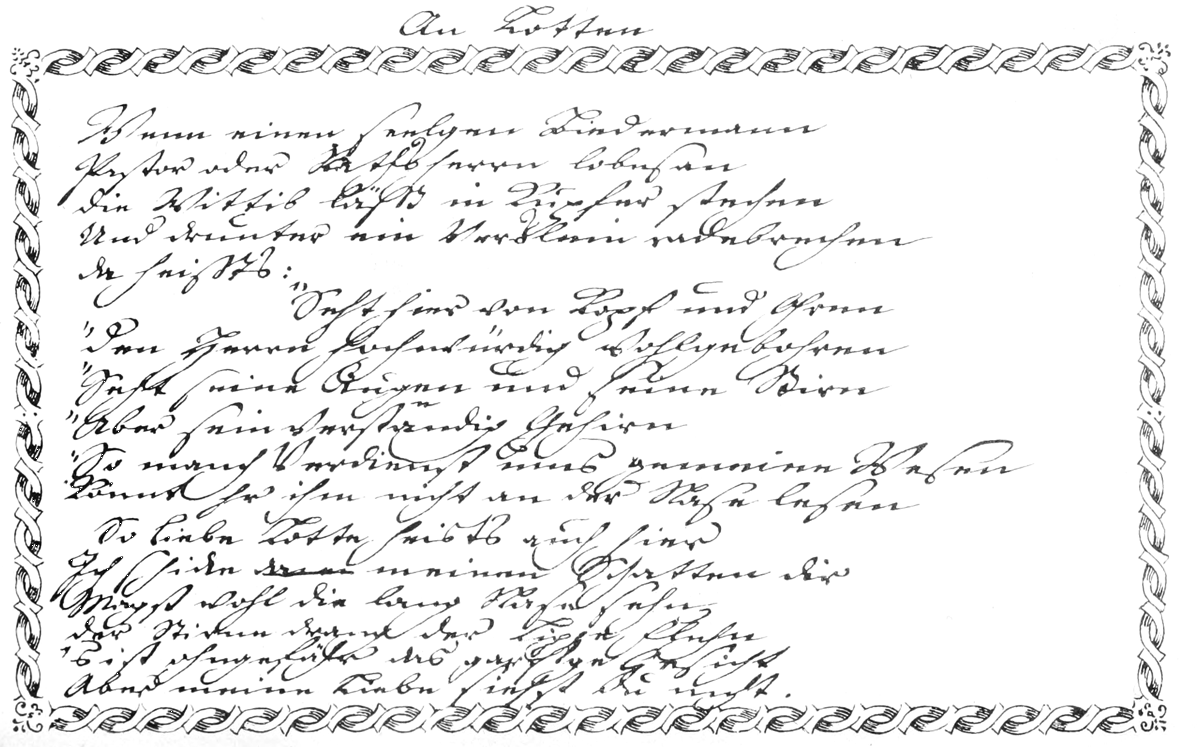 An Lotten
Wenn einen seelgen Biedermann
Pastor oder Rathsherrn lobesan
die Wittib läßt in Kupfer stechen
Und drunter ein Verslein radebrechen
da heissts:
"Seht hier von Kopf und Ohren
"den Herrn hochwürdig wohlgebohren
"Seht seine Augen und seine Stirn
"Aber sein verständig Gehirn
"So manch Verdienst ums gemeine Wesen
"Könnt Ihr ihm nicht an der Nase lesen
So liebe Lotte heists auch hier
Ich schicke meinen Schatten dir
Magst wohl die lang Nase sehn,
der Stirne drang der Lippe flehn
's ist ohngefähr das garstge Gesicht
Aber meine Liebe siehst du nicht.